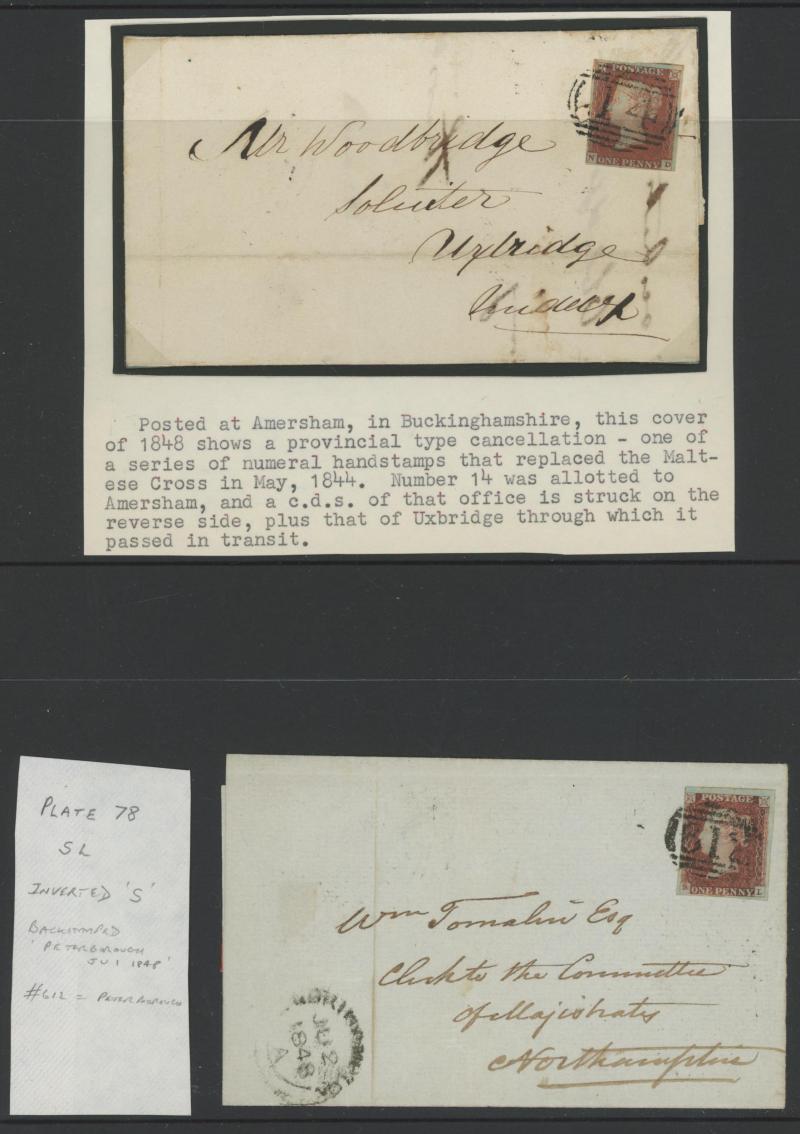 POSTAGE
N D
ONE PENNY
Mr Woodbridge
Soliciter
Uxbridge
Posted at Amersham, in Buckinghamshire, this cover
of 1848 shows a provincial type cancellation - one of
a series of numeral handstamps that replaced the Malt-
ese Cross in May, 1844. Number 14 was allotted to
Amersham, and a c.d.s. of that office is struck on the
reverse side, plus that of Uxbridge through which it
passed in transit.
PLATE 78
SL
INVERTED 'S'
BACKSTAMPED
'PETERBOROUGH
JU 1 1848'
#612 = PETERBOROUGH
POSTAGE
612
S L
ONE PENNY
Wm Tomalin Esq
Clerk to the Committee
of Majistrates
Northampton
JU 2
1848
A